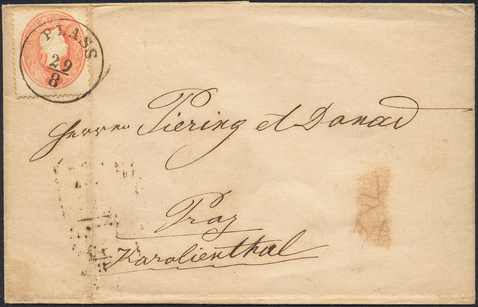 PLASS
29/8
Herrn Tiering et Donad
Prag
Karolienthal